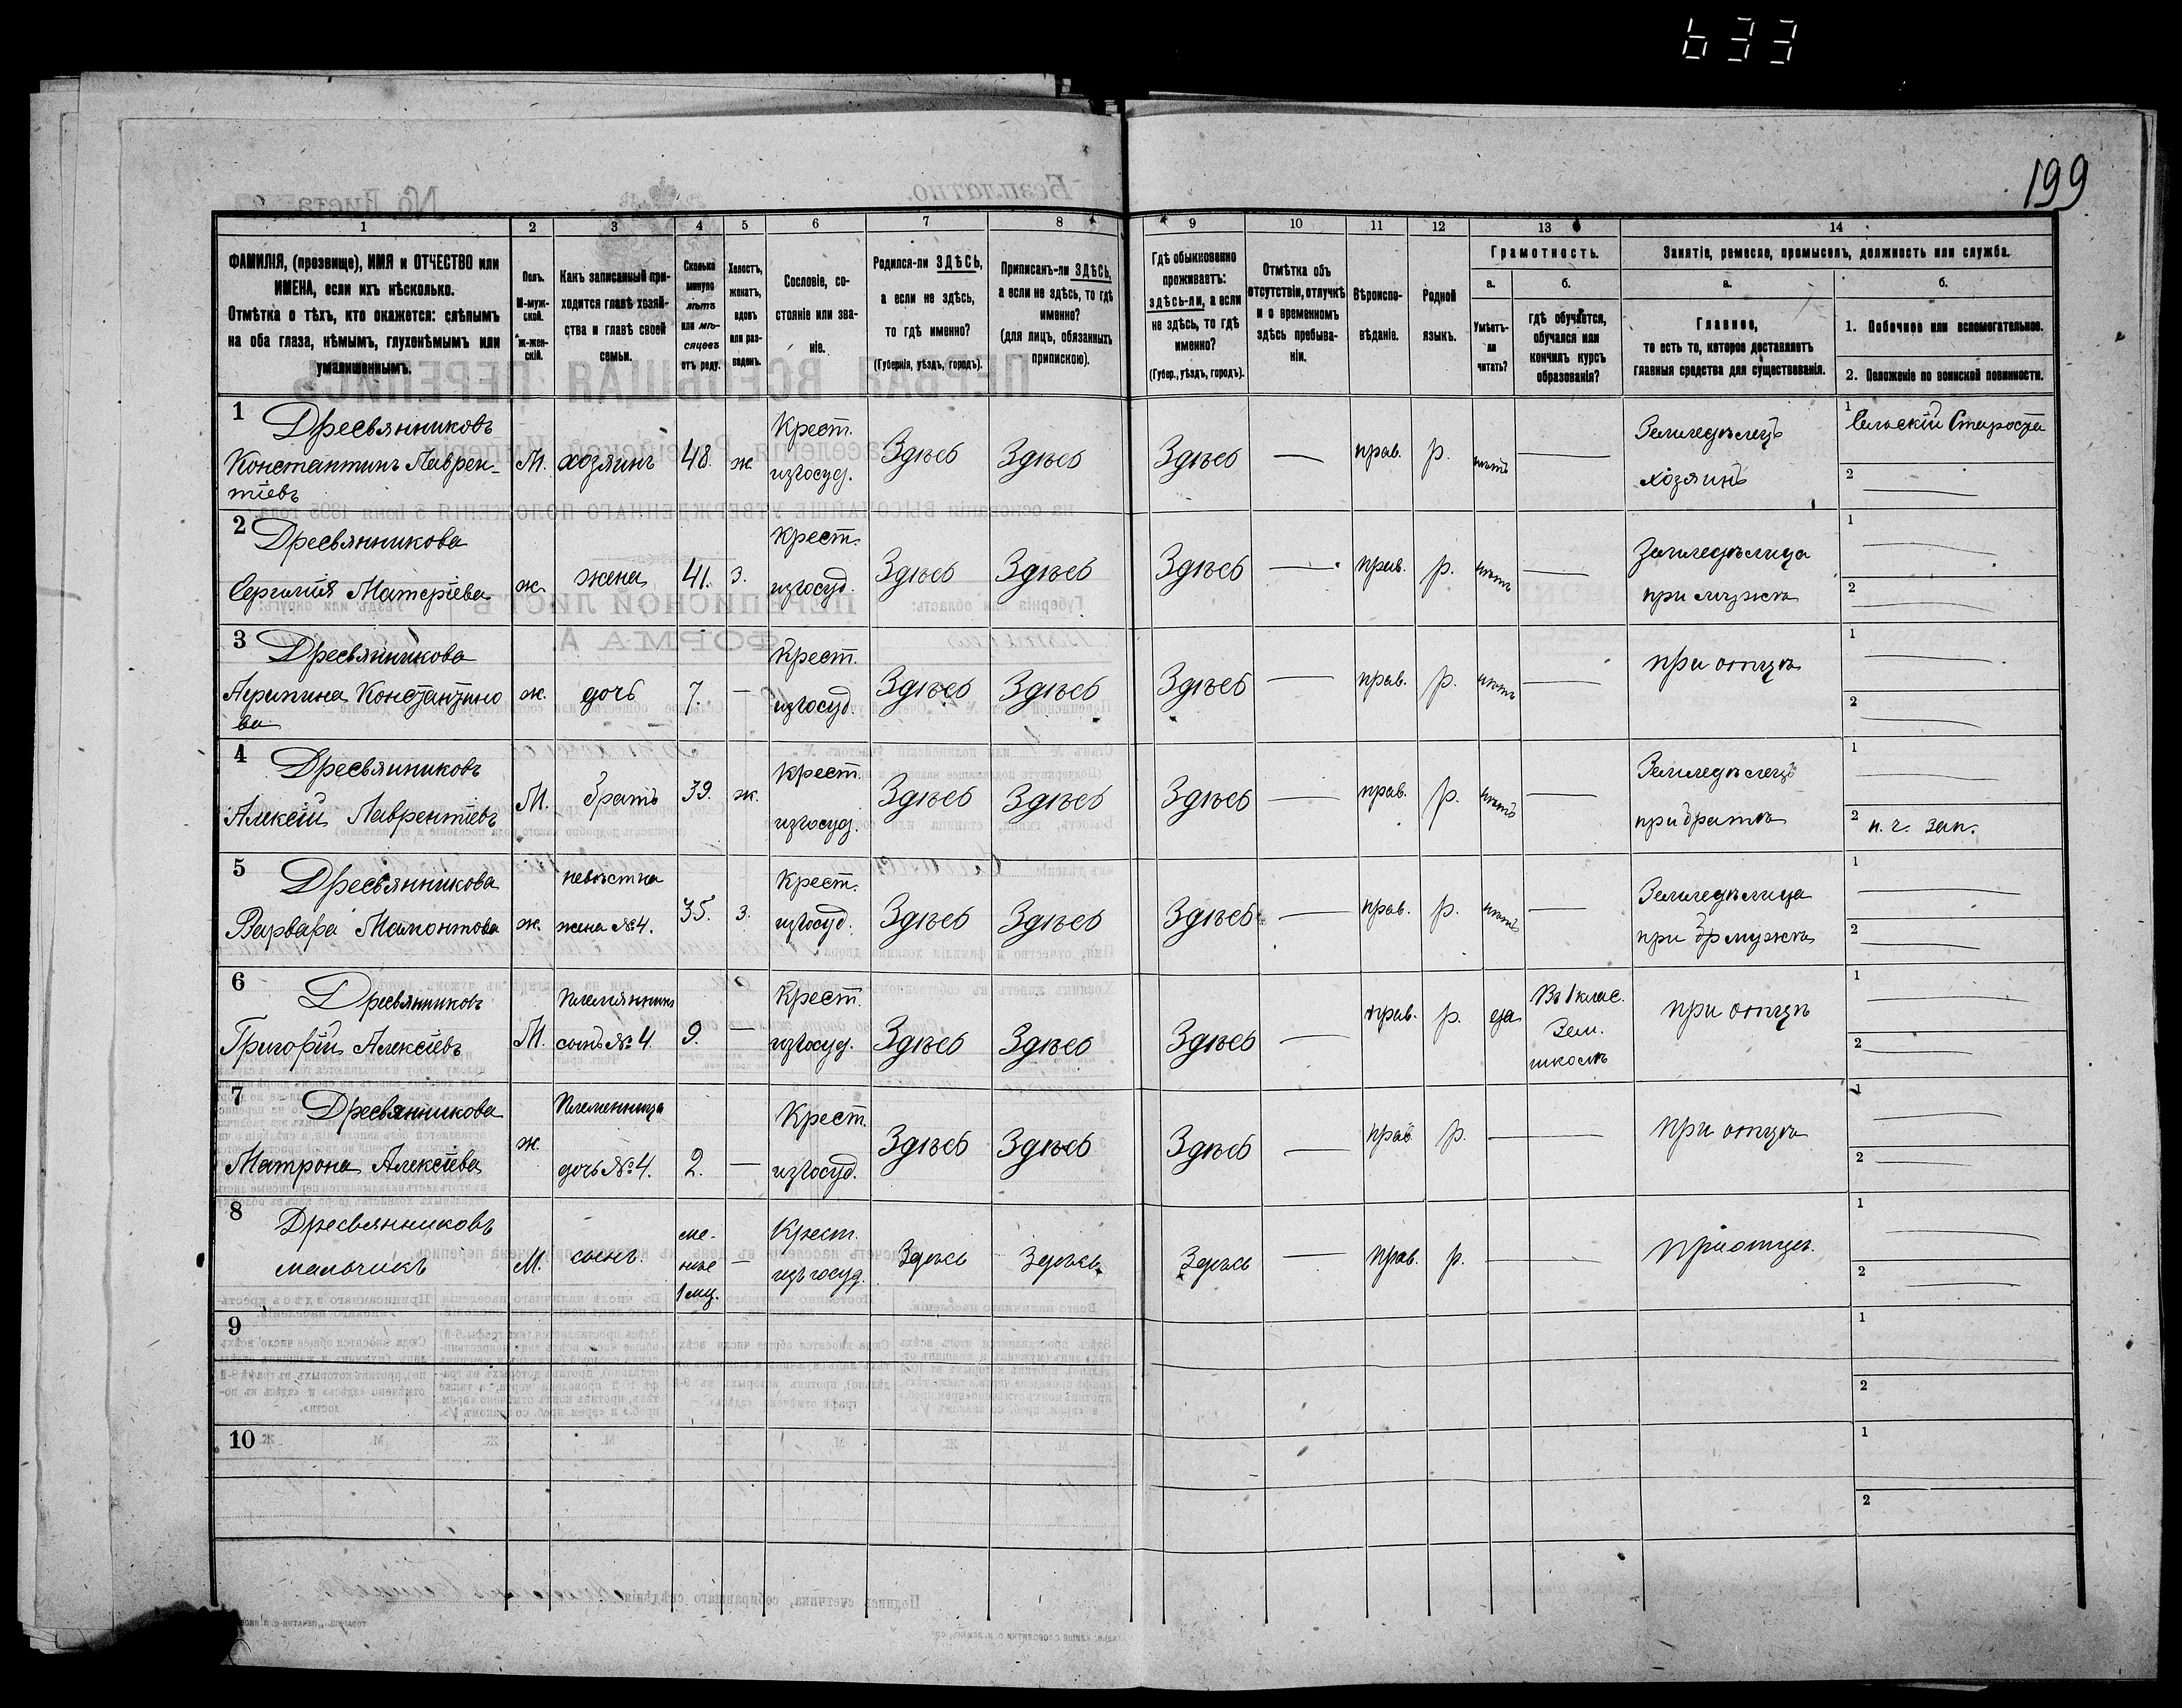 633
199
1
2
3
4
5
6
7
8
9
10
11
12
13
14
ФАМИЛІЯ, (прозвище), ИМЯ и ОТЧЕСТВО или
ИМЕНА, если ихъ нѣсколько.
Отмѣтка о тѣхъ, кто окажется: слѣпымъ
на оба глаза, нѣмымъ, глухонѣмымъ или
умалишеннымъ.
Полъ.
М-муж-
ской.
Ж-жен-
скій.
Какъ записанный при-
ходится главѣ хозяй-
ства и главѣ своей
семьи.
Сколько
минуло
лѣтъ
или мѣ-
сяцевъ
отъ роду.
Холостъ,
женатъ,
вдовъ
или раз-
веденъ.
Сословіе, со-
стояніе или зва-
ніе.
Родился-ли ЗДѢСЬ,
а если не здѣсь,
то гдѣ именно?
(Губернія, уѣздъ, городъ).
Приписанъ-ли ЗДѢСЬ,
а если не здѣсь, то гдѣ
именно?
(для лицъ, обязанныхъ
припискою).
Гдѣ обыкновенно
проживаетъ:
здѣсь-ли, а если
не здѣсь, то гдѣ
именно?
(Губер., уѣздъ, городъ).
Отмѣтка объ
отсутствіи, отлучкѣ
и о временномъ
здѣсь пребыва-
ніи.
Вѣроиспо-
вѣданіе.
Родной
языкъ.
Грамотность.
а.
б.
Умѣетъ-
ли
читать?
гдѣ обучается,
обучался или
кончилъ курсъ
образованія?
Занятіе, ремесло, промыселъ, должность или служба.
а.
б.
Главное,
то есть то, которое доставляетъ
главныя средства для существованія.
1. Побочное или вспомогательное.
2. Положеніе по воинской повинности.
1 Дресвянниковъ
Константинъ Лаврен-
тіевъ
М. хозяинъ 48. ж.
Крест.
изъ госуд.
Здѣсь Здѣсь Здѣсь — прав. р. нѣтъ —
Земледѣлецъ
хозяинъ
1 Сельскій Староста
2 —
2 Дресвянникова
Матеріева
ж. жена 41. з.
Крест.
изъ госуд.
Здѣсь Здѣсь Здѣсь — прав. р. нѣтъ —
Земледѣлица
при мужѣ
1 —
2 —
3 Дресвянникова
Агрипина Константино
ва
ж. дочь 7. —
Крест.
изъ госуд.
Здѣсь Здѣсь Здѣсь — прав. р. нѣтъ —
при отцѣ
1 —
2 —
4 Дресвянниковъ
Алексѣй Лаврентіевъ
М. братъ 39. ж.
Крест.
изъ госуд.
Здѣсь Здѣсь Здѣсь — прав. р. нѣтъ —
Земледѣлецъ
при братѣ
1 —
2 н. ч. зап.
5 Дресвянникова
Варвара Мамонтова
ж.
невѣстка
жена №4.
35. з.
Крест.
изъ госуд.
Здѣсь Здѣсь Здѣсь — прав. р. нѣтъ —
Земледѣлица
при мужѣ
1 —
2 —
6 Дресвянниковъ
Григорій Алексѣевъ
М.
Племянникъ
сынъ №4.
9. —
Крест.
изъ госуд.
Здѣсь Здѣсь Здѣсь — прав. р. да
Въ 1 клас.
Зем.
школѣ
при отцѣ
1 —
2 —
7 Дресвянникова
Матрона Алексѣева
ж.
Племенница
дочь №4.
2. —
Крест.
изъ госуд.
Здѣсь Здѣсь Здѣсь — прав. р. —
при отцѣ
1 —
2 —
8 Дресвянниковъ
мальчикъ
М. сынъ.
ме-
нѣе
1 мц.
—
Крест.
изъ госуд.
Здѣсь Здѣсь Здѣсь — прав. р. —
при отцѣ.
1 —
2 —
9
1
2
10
1
2